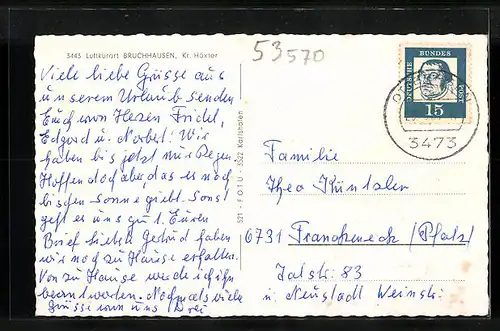 3443 Luftkurort BRUCHHAUSEN, Kr. Höxter
53570
Viele liebe Grüsse aus
unserem Urlaub senden
Euch von Herzen Fridel,
Edgard u. Norbert. Wir
haben bis jetzt nur Regen
Hoffen doch aber, das es noch
bischen Sonne giebt. Sonst
geht es uns gut. Euren
Brief liebste Gertrud haben
wir noch zu Hause erhalten.
Von zu Hause werde ich ihn
beantworten. Nochmals viele
Grüsse von uns Drei
521 - FOTO - 3522 Karlshafen
DEUTSCHE BUNDESPOST
15
3473
Familie
Theo Küntzler
6731 Frankeneck / Pfalz /
Talstr. 83
u. Neustadt Weinstr.